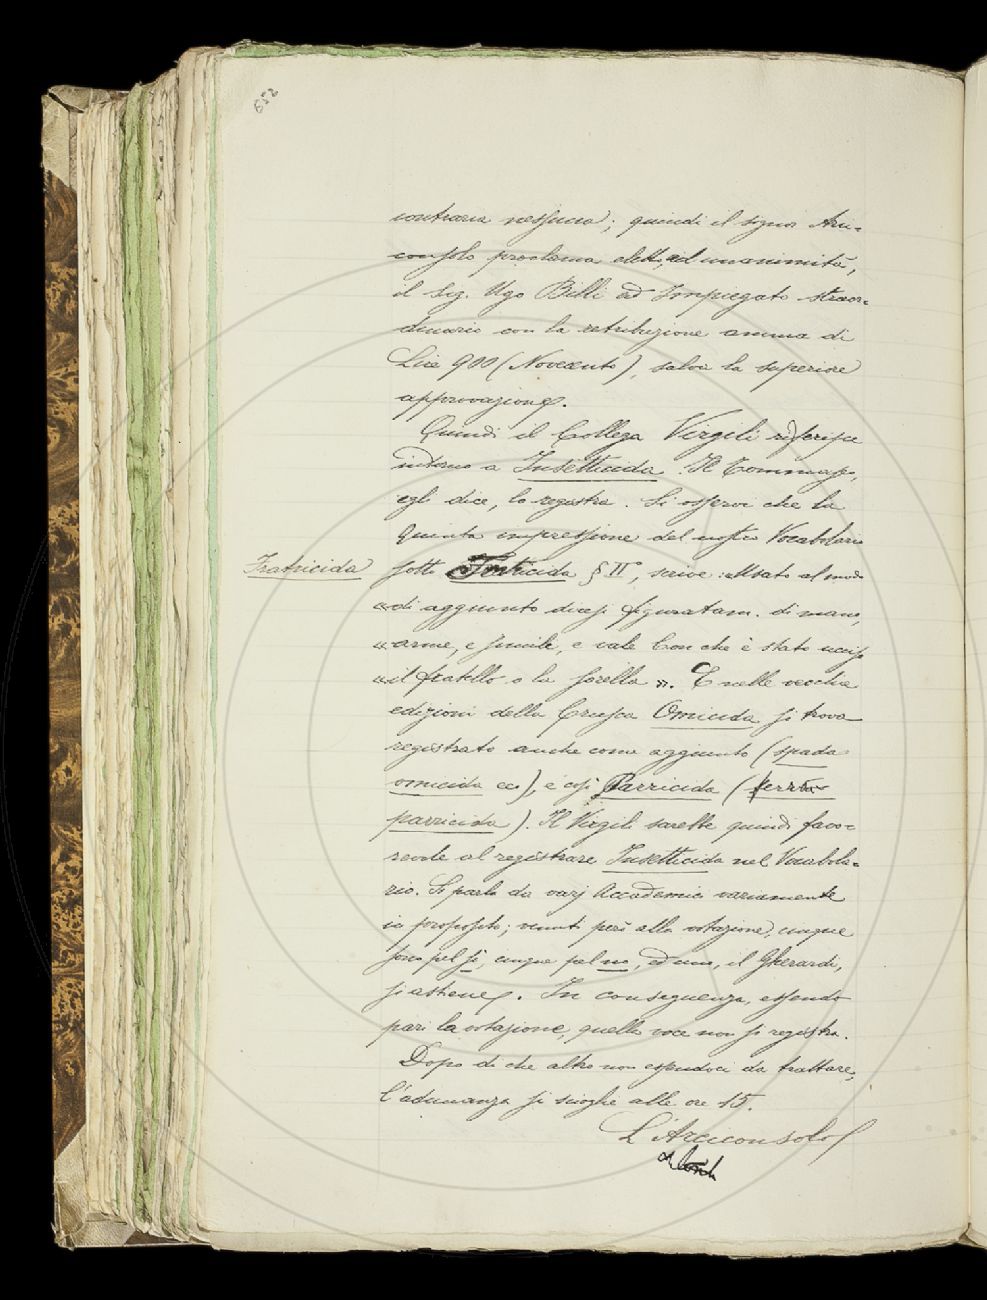 652
contraria nessuna; quindi il signor Arci-
consolo proclama eletto, ad unanimità,
il Sig. Ugo Billi ad Impiegato straor-
dinario con la retribuzione annua di
Lire 900 (Novecento), salva la superiore
approvazione.
Quindi il Collega Virgili riferisce
intorno a Insetticida. Il Tommaseo,
egli dice, lo registra. Si osservi che la
quinta impressione del nostro Vocabolario
Fratricida
sotto Fratricida § II, scrive: «Usato al modo
«di aggiunto dicesi figuratam. di mano,
«arme, e simile, e vale Con che è stato ucciso
«il fratello o la sorella». E nelle vecchie
edizioni della Crusca Omicida si trova
registrato anche come aggiunto (spada
omicida ec), e così Parricida (ferro
parricida). Il Virgili sarebbe quindi favo-
revole al registrare Insetticida nel Vocabola-
rio. Si parla da varj Accademici variamente
in proposito; venuti però alla votazione, cinque
sono pel sì, cinque pel no, ed uno, il Gherardi,
si astiene. In conseguenza, essendo
pari la votazione, quella voce non si registra.
Dopo di che altro non essendoci da trattare,
l'adunanza si scioglie alle ore 15.
L'Arciconsolo